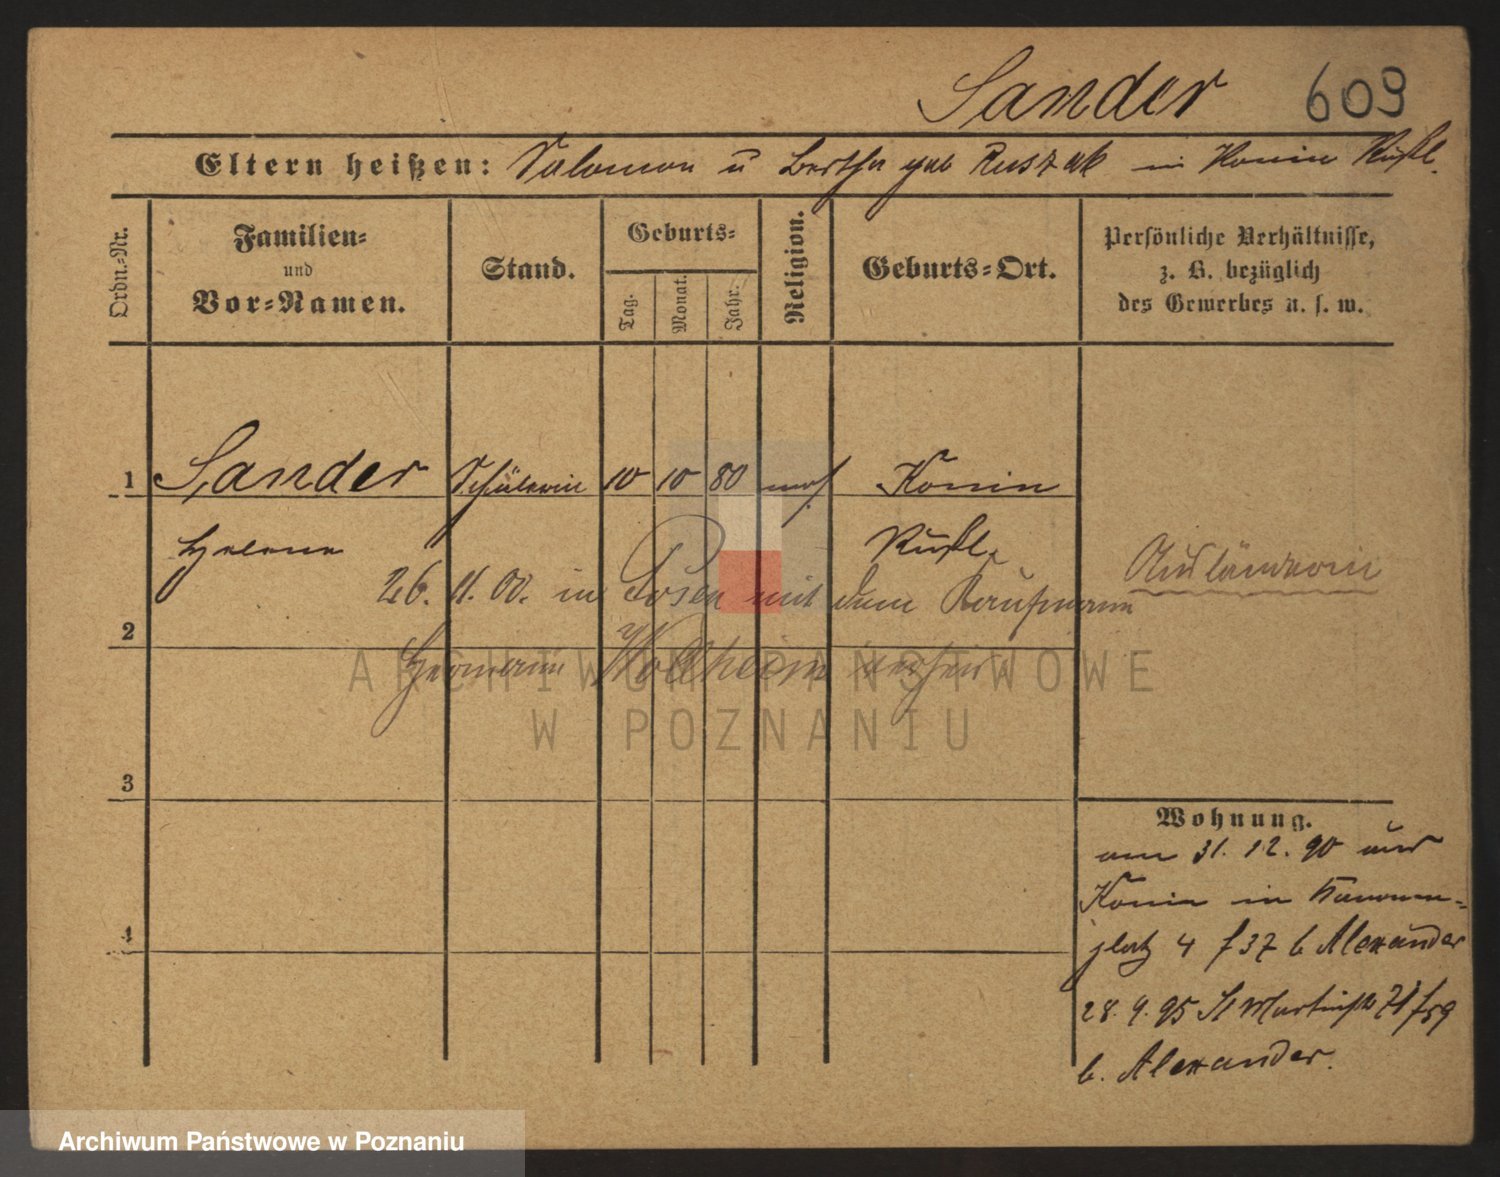 Sander 609
Eltern heißen: Salomon u Bertha geb Ruszak in Konin Rußl.
Ordn.-Nr.
Familien-
und
Vor-Namen.
Stand.
Geburts-
Tag.
Monat.
Jahr.
Religion.
Geburts-Ort.
Persönliche Verhältnisse,
z. B. bezüglich
des Gewerbes u. s. w.
1 Sander Schülerin 10 10 80 mos Konin
Helene Rußl.
Ausländerin
26. 11. 00. in Posen mit dem Kaufmann
2
Hermann Wollheim verheir
3
4
Wohnung.
am 31. 12. 90 aus
Konin in Kanonen-
platz 4 f 37 b Alexander
28. 9. 95 St Martinstr 71 f 59
b. Alexander.
ARCHIWUM PAŃSTWOWE
W POZNANIU
Archiwum Państwowe w Poznaniu